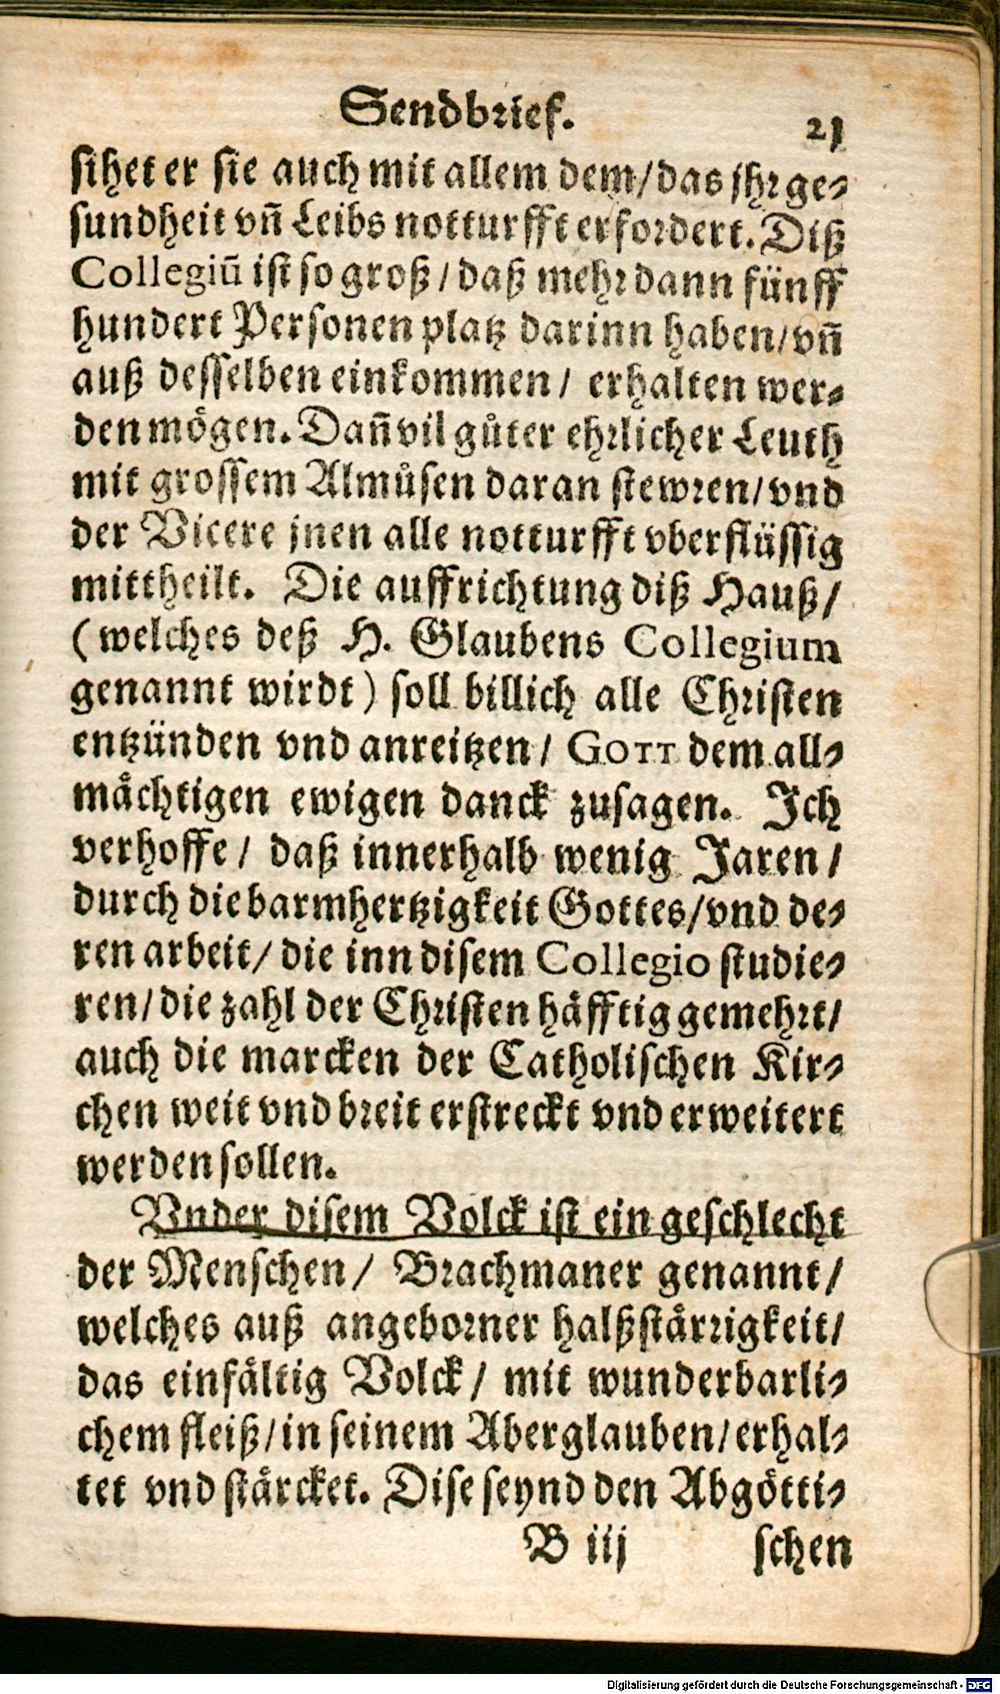 Sendbrief. 21
sihet er sie auch mit allem dem/das jhr ge-
sundheit vn̄ Leibs notturfft erfordert. Diß
Collegiū ist so groß/daß mehr dann fünff
hundert Personen platz darinn haben/vn̄
auß desselben einkommen/ erhalten wer-
den mögen. Dañ vil gůter ehrlicher Leuth
mit grossem Almůsen daran stewren/vnd
der Vicere jnen alle notturfft vberflüssig
mittheilt. Die auffrichtung diß Hauß/
(welches deß H. Glaubens Collegium
genannt wirdt) soll billich alle Christen
entzünden vnd anreitzen/ GOTT dem all-
mächtigen ewigen danck zusagen. Ich
verhoffe/ daß innerhalb wenig Jaren/
durch die barmhertzigkeit Gottes/vnd de-
ren arbeit/ die inn disem Collegio studie-
ren/die zahl der Christen häfftig gemehrt/
auch die marcken der Catholischen Kir-
chen weit vnd breit erstreckt vnd erweitert
werden sollen.
Vnder disem Volck ist ein geschlecht
der Menschen/ Brachmaner genannt/
welches auß angeborner halßstärrigkeit/
das einfältig Volck/ mit wunderbarli-
chem fleiß/in seinem Aberglauben/erhal-
tet vnd stärcket. Dise seynd den Abgötti-
B iij schen
Digitalisierung gefördert durch die Deutsche Forschungsgemeinschaft - DFG